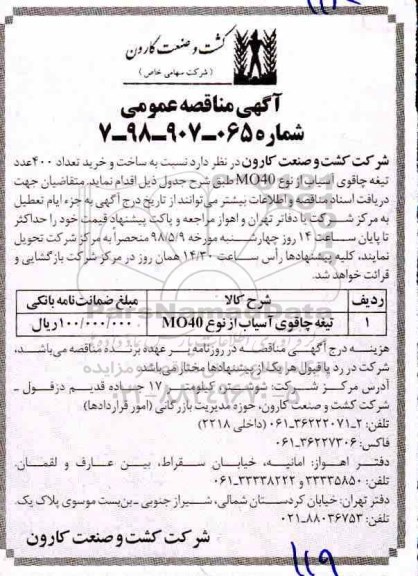 کشت و صنعت کارون
(شرکت سهامی خاص)
آگهی مناقصه عمومی
شماره ۰۶۵-۹۰۷-۹۸-۷
شرکت کشت و صنعت کارون در نظر دارد نسبت به ساخت و خرید تعداد ۴۰۰ عدد
تیغه چاقوی آسیاب از نوع MO40 طبق شرح جدول ذیل اقدام نماید. متقاضیان جهت
دریافت اسناد مناقصه و اطلاعات بیشتر می‌توانند از تاریخ درج آگهی به جزء ایام تعطیل
به مرکز شرکت یا دفاتر تهران و اهواز مراجعه و پاکت پیشنهاد قیمت خود را حداکثر
تا پایان ساعت ۱۴ روز چهارشنبه مورخه ۹۸/۵/۹ منحصراً به مرکز شرکت تحویل
نمایند، کلیه پیشنهادها رأس ساعت ۱۴/۳۰ همان روز در مرکز شرکت بازگشایی و
قرائت خواهد شد.
ردیف شرح کالا مبلغ ضمانت نامه بانکی
۱ تیغه چاقوی آسیاب از نوع MO40 ۱۰۰/۰۰۰/۰۰۰ ریال
هزینه درج آگهی مناقصه در روزنامه بر عهده برنده مناقصه می‌باشد،
شرکت در رد یا قبول هر یک از پیشنهادها مختار می‌باشد.
آدرس مرکز شرکت: شوشتر، کیلومتر ۱۷ جاده قدیم دزفول -
شرکت کشت و صنعت کارون، حوزه مدیریت بازرگانی (امور قراردادها)
تلفن: ۲-۳۶۲۲۲۰۷۱-۰۶۱ (داخلی ۲۲۱۸)
فاکس: ۳۶۲۲۷۳۰۶-۰۶۱
دفتر اهواز: امانیه، خیابان سقراط، بین عارف و لقمان.
تلفن: ۳۳۳۳۵۸۵۰ و ۳۳۳۳۸۲۲۲-۰۶۱
دفتر تهران: خیابان کردستان شمالی، شیراز جنوبی - بن‌بست موسوی پلاک یک.
تلفن: ۸۸۰۳۶۷۵۳-۰۲۱
شرکت کشت و صنعت کارون
۱۱۹